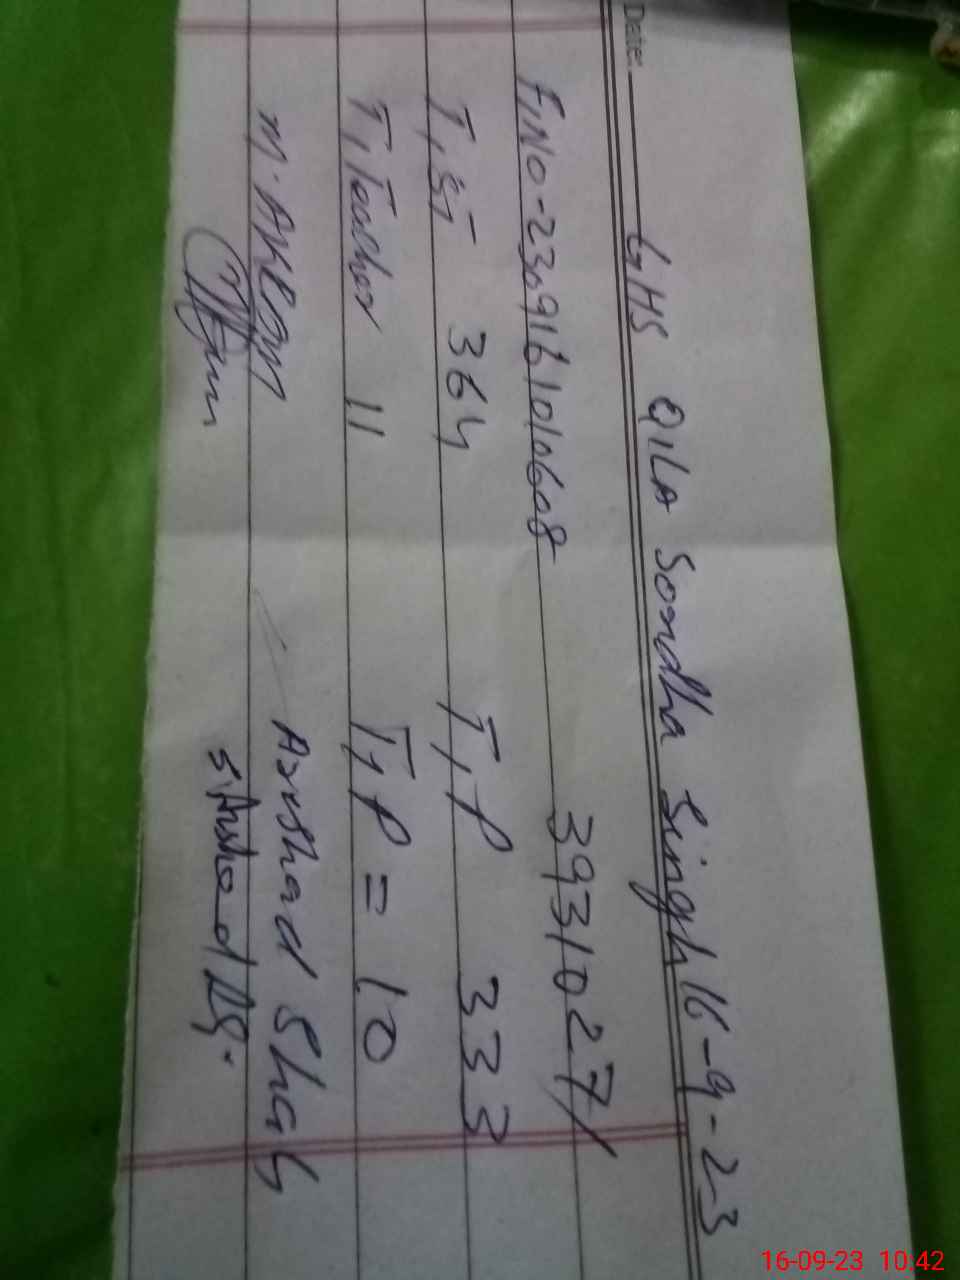 Date:
GHS QILA Sondha Singh 16-9-23
F,NO-2309161010608 39310271
T,ST 364 T,P 333
T,Teacher 11 T,P = 10
M.AKRAM Arshad Shah
16-09-23 10:42